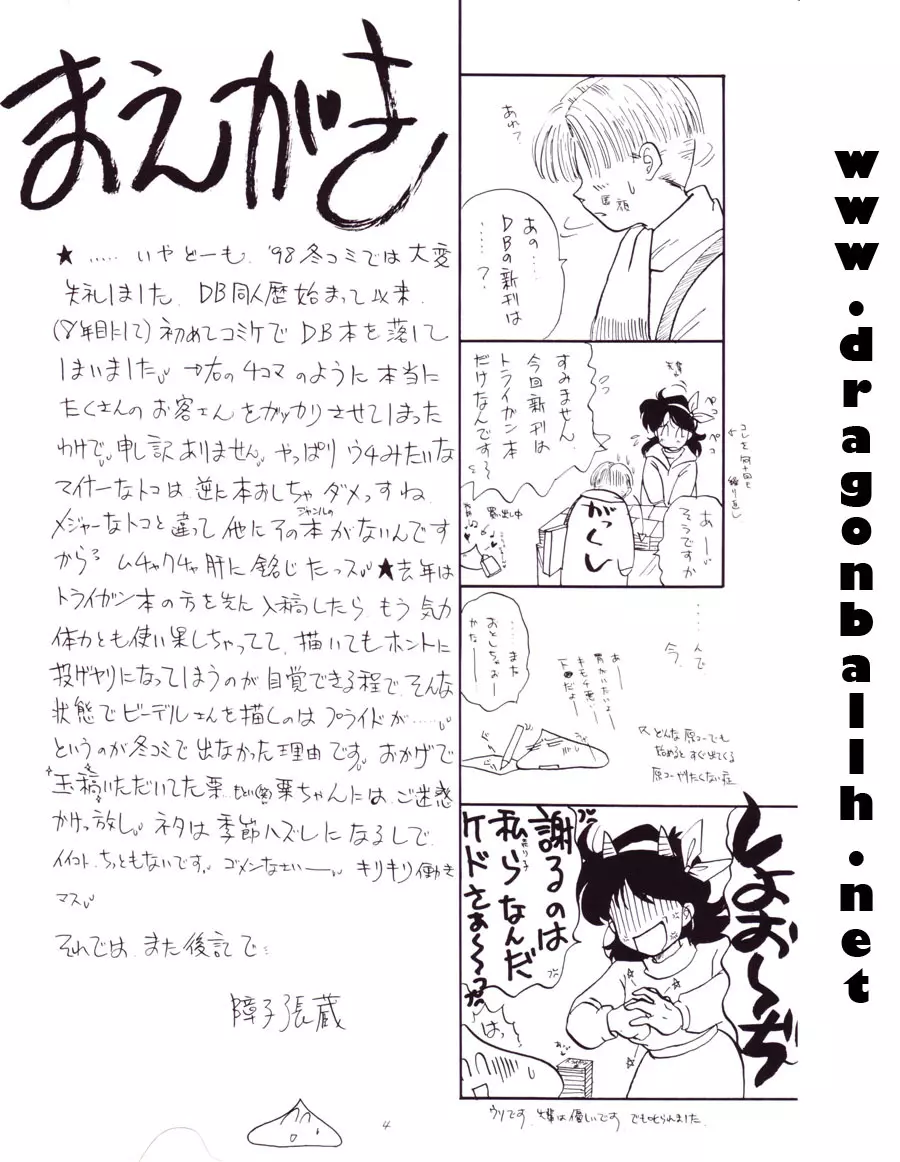 まえがき
★ ..... いやどーも、'98冬コミでは大変
失礼しました。DB同人歴始まって以来、
(8年目にして)初めてコミケでDB本を落して
しまいました。→右の4コマのように本当に
たくさんのお客さんをガッカリさせてしまった
わけで。申し訳ありません。やっぱりウチみたいな
マイナーなトコは逆に本おしちゃダメっすね、
メジャーなトコと違って他にそのジャンルの本がないんです
から。ムチャクチャ肝に銘じたっス。★去年は
トライガン本の方を先に入稿したら、もう気力
体力とも使い果しちゃってて、描いてもホントに
投げヤリになってしまうのが自覚できる程で、そんな
状態でビーデルさんを描くのはプライドが......。
というのが冬コミで出なかった理由です。おかげで
玉稿いただいてた栗栗ちゃんにはご迷惑
かけっ放し。ネタは季節ハズレになるしで
イイコト、ちっともないです。ゴメンなさいー。キリキリ働き
マス。
それでは、また後記で。
障子張蔵
4
あれ?
あの......
DBの新刊は
......?
すみません
今回新刊は
トライガン本
だけなんです〜
ペコ
ペコ
コレを何十回も
繰り返し
あー
そうですか
がっくし
......んで
今、
......また
おとしちゃおー
かなー
あー
胃がいたいよー
キモチ悪いー
下●だよー
どんな原コーでも
始めるとすぐ出てくる
原コーやりたくない症
しょお〜ぢ
謝るのは
私らなんだ
ケドさぁ〜〜っ
はっ
ウソです。先輩は優しいです。でも叱られました。
www.dragonballh.net